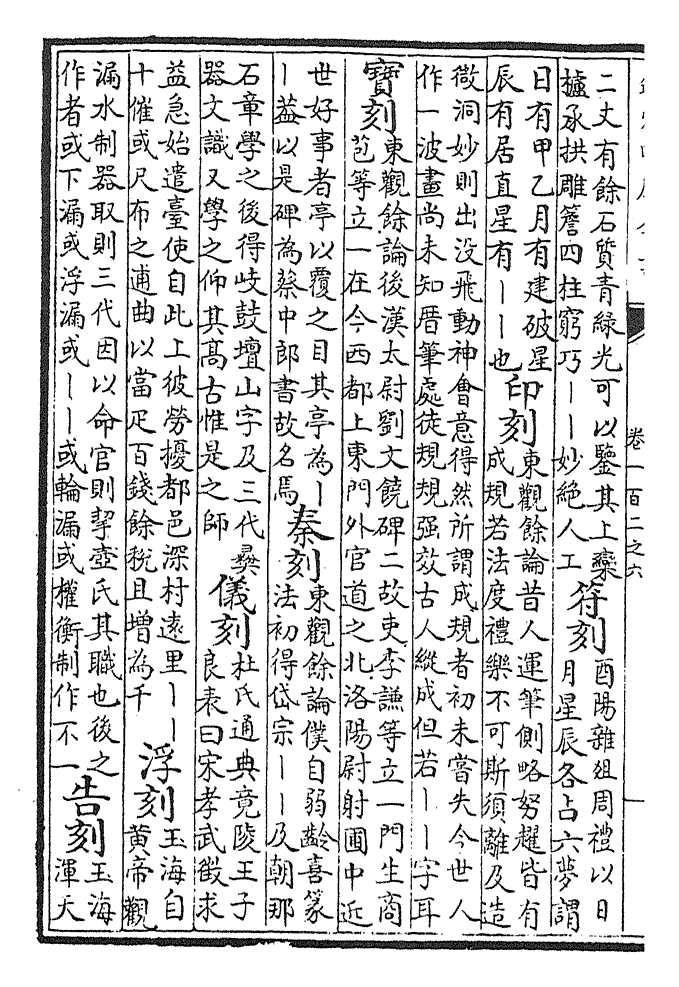 卷一百二之六
二丈有餘石質青緑光可以鑒其上欒
櫨承拱雕簷四柱窮巧——妙絶人工
符刻
酉陽雜俎周禮以日
月星辰各占六夢謂
日有甲乙月有建破星
辰有居直星有——也
印刻
東觀餘論昔人運筆側略努趯皆有
成規若法度禮樂不可斯須離及造
微洞妙則出没飛動神會意得然所謂成規者初未嘗失今世人
作一波畫尚未知厝筆處徒規規强效古人縱成但若——字耳
寶刻
東觀餘論後漢太尉劉文饒碑二故吏李謙等立一門生商
苞等立一在今西都上東門外官道之北洛陽尉射圃中近
世好事者亭以覆之目其亭為—
—葢以是碑為蔡中郎書故名焉
秦刻
東觀餘論僕自弱齡喜篆
法初得岱宗——及朝那
石章學之後得岐鼓壇山字及三代彝
器文識又學之仰其髙古惟是之師
儀刻
杜氏通典竟陵王子
良表曰宋孝武徵求
益急始遣臺使自此上彼勞擾都邑深村遠里——
十催或尺布之逋曲以當疋百錢餘税且增為千
浮刻
玉海自
黄帝觀
漏水制器取則三代因以命官則挈壺氏其職也後之
作者或下漏或浮漏或——或輪漏或權衡制作不一
告刻
玉海
渾天